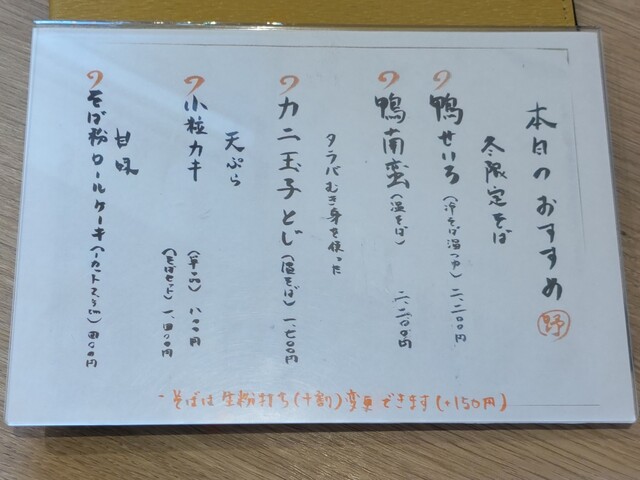 本日のおすすめ
野
冬限定そば
鴨せいろ(冷そば温つゆ)二、二〇〇円
鴨南蛮(温そば)二、二〇〇円
タラバむき身を使った
カニ玉子とじ(温そば)一、七〇〇円
天ぷら
小粒カキ
(単品)八〇〇円
(そばセット)一、四〇〇円
甘味
そば粉ロールケーキ(一カット2.5cm)四〇〇円
そばは生粉打ち(十割)変更できます(+150円)